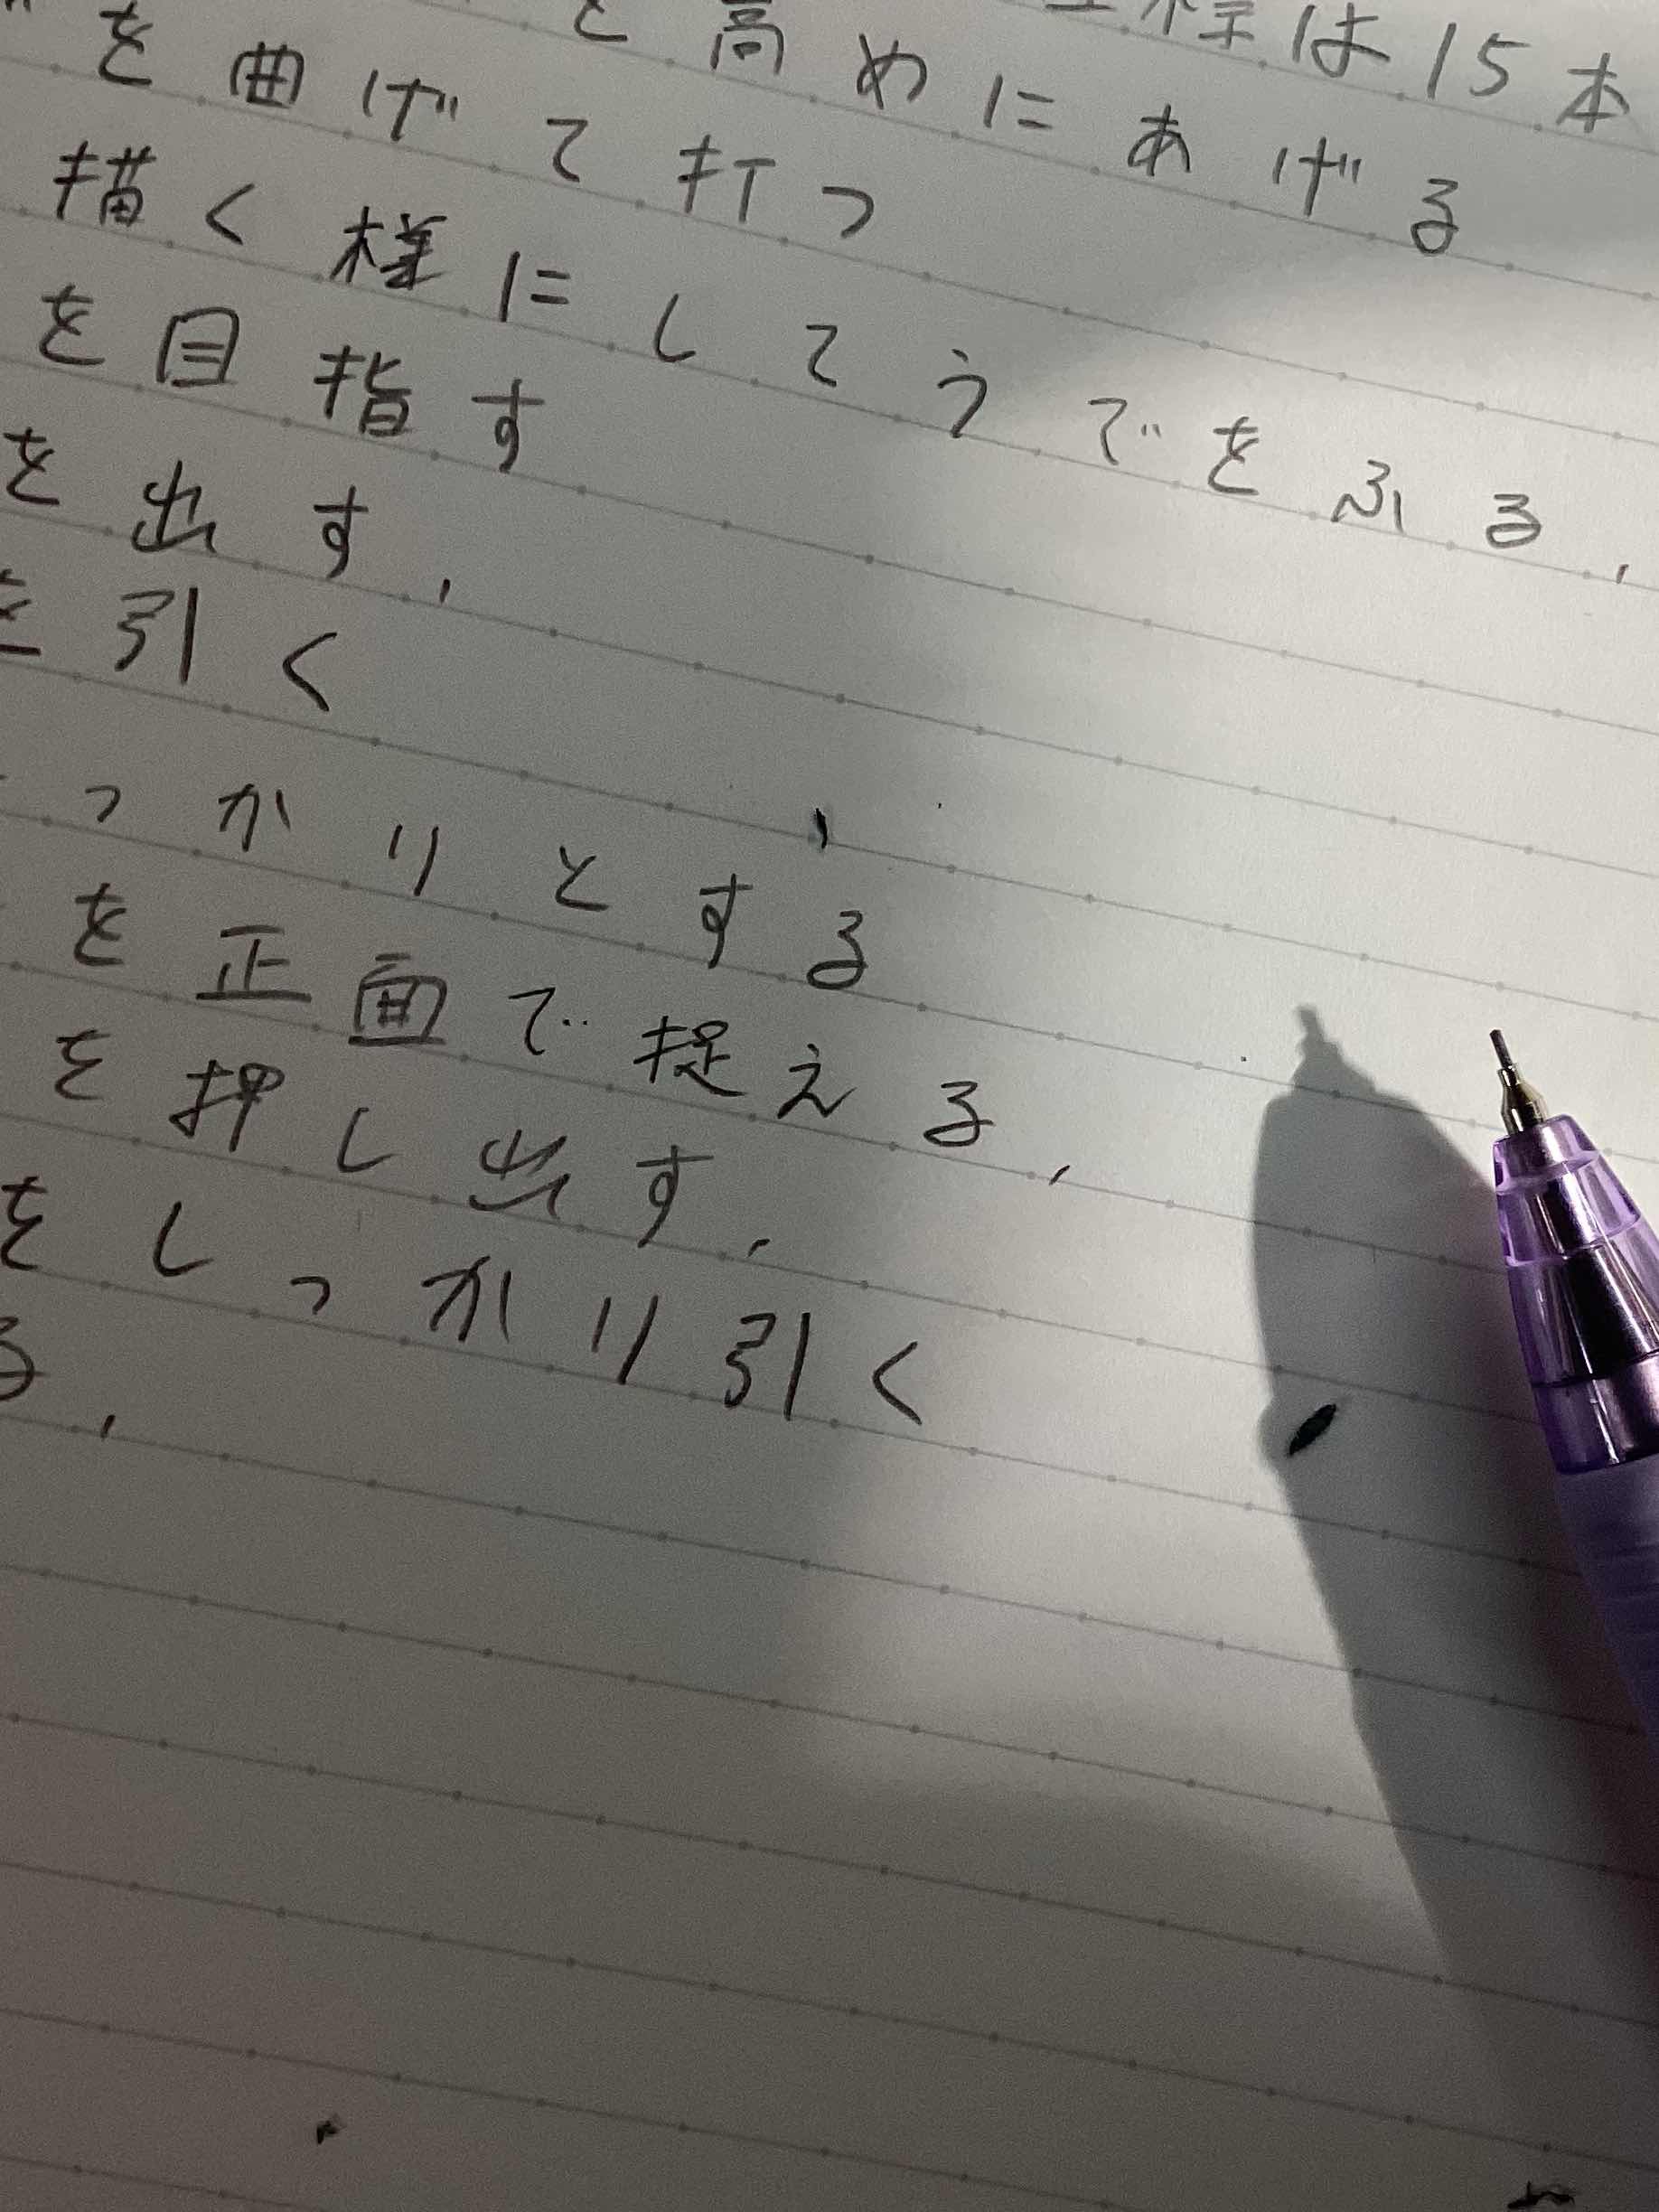 様は15本
を高めにあげる
を曲げて打つ
描く様にしてうでをふる,
を目指す
を出す,
を引く
っかりとする
を正面で捉える,
を押し出す,
をしっかり引く
る,